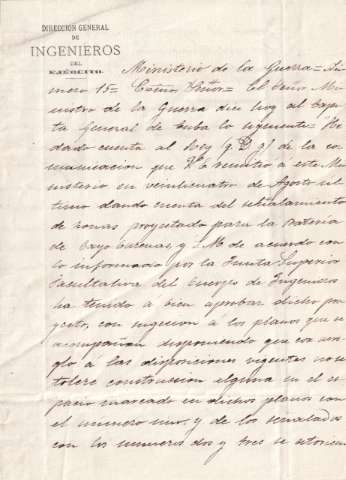 DIRECCIÓN GENERAL
DE
INGENIEROS
DEL
EJÉRCITO.
Ministerio de la Guerra = Nú-
mero 15 = Excmo Señor = El Señor Mi-
nistro de la Guerra dice hoy al Capi-
tan General de Cuba lo siguiente = "He
dado cuenta al Rey (q. D. g.) de la co-
municacion que V. E. remitió á este Mi-
nisterio en veinticuatro de Agosto úl-
timo dando cuenta del señalamiento
de zonas proyectado para la bateria
de Cayo Carenas y S. M. de acuerdo con
lo informado por la Junta Superior
Facultativa del Cuerpo de Ingenieros
ha tenido á bien aprobar dicho pro-
yecto, con sugecion á los planos que se
acompañan disponiendo que con arre-
glo á las disposiciones vigentes no se
tolere construccion alguna en el es-
pacio marcado en dichos planos con
el número uno, y de los señalados
con los números dos y tres se